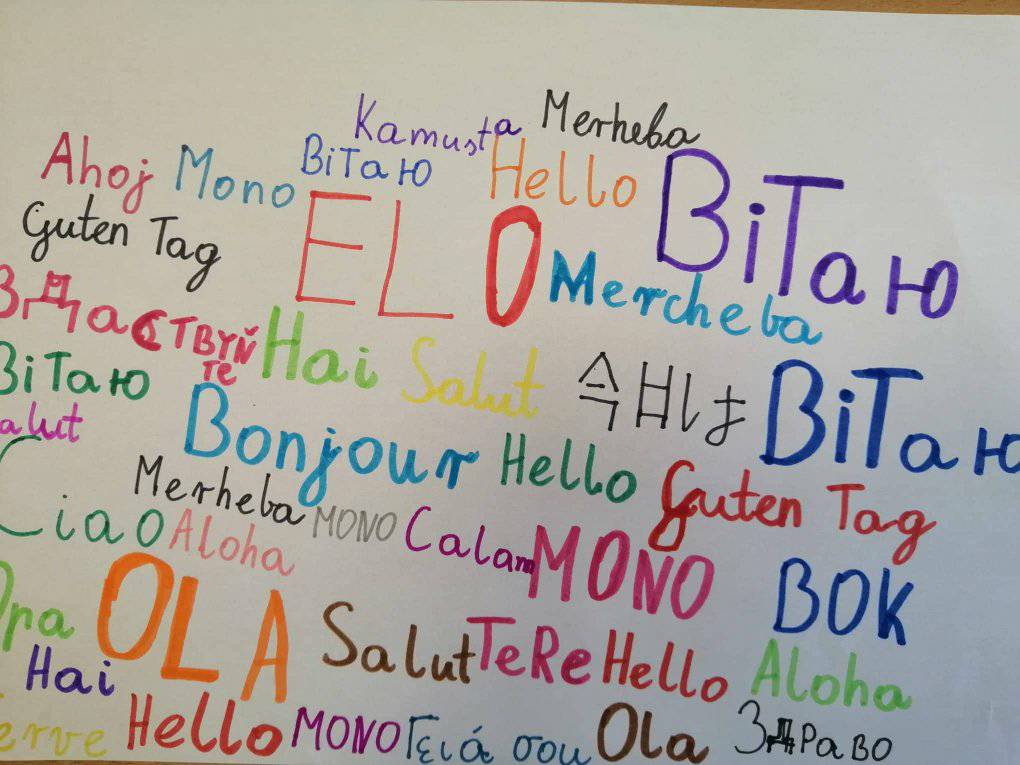 Kamusta Merheba
Ahoj Mono Вітаю Hello Вітаю
Guten Tag ELO Mercheba
Здаствуйте Hai Salut Вітаю
Вітаю Bonjour Hello Guten Tag
alut
Ciao Merheba MONO Calam MONO
Aloha BOK
OLA Salut TeRe Hello Aloha
Hai
erve Hello MONO Γειά σου Ola Здраво